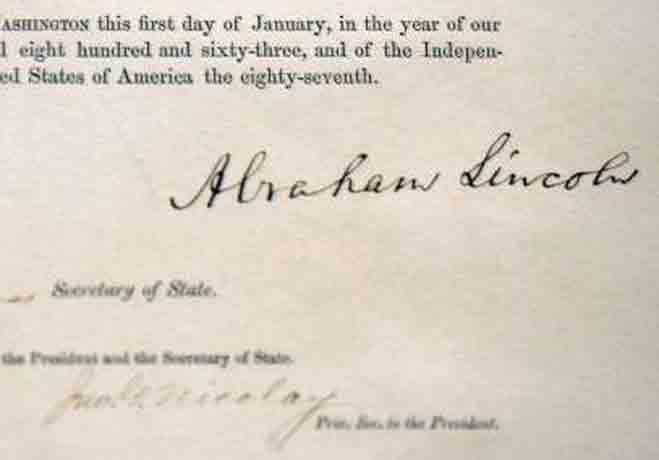 ASHINGTON this first day of January, in the year of our
l eight hundred and sixty-three, and of the Indepen-
ed States of America the eighty-seventh.
Abraham Lincoln
Secretary of State.
the President and the Secretary of State.
Jno. G. Nicolay
Priv. Sec. to the President.